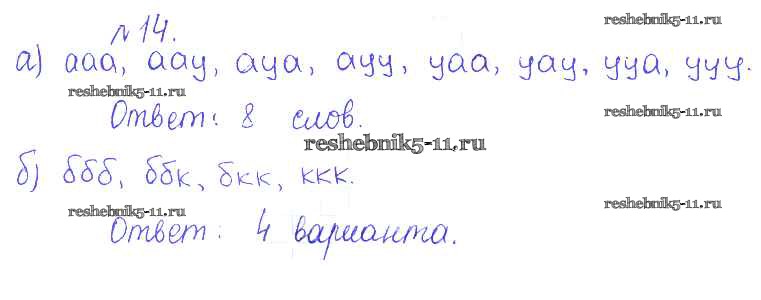 №14. reshebnik5-11.ru
а) ааа, аау, ауа, ауу, уаа, уау, ууа, ууу.
reshebnik5-11.ru
Ответ: 8 слов. reshebnik5-11.ru
reshebnik5-11.ru
б) ббб, ббк, бкк, ккк.
reshebnik5-11.ru reshebnik5-11.ru
Ответ: 4 варианта.